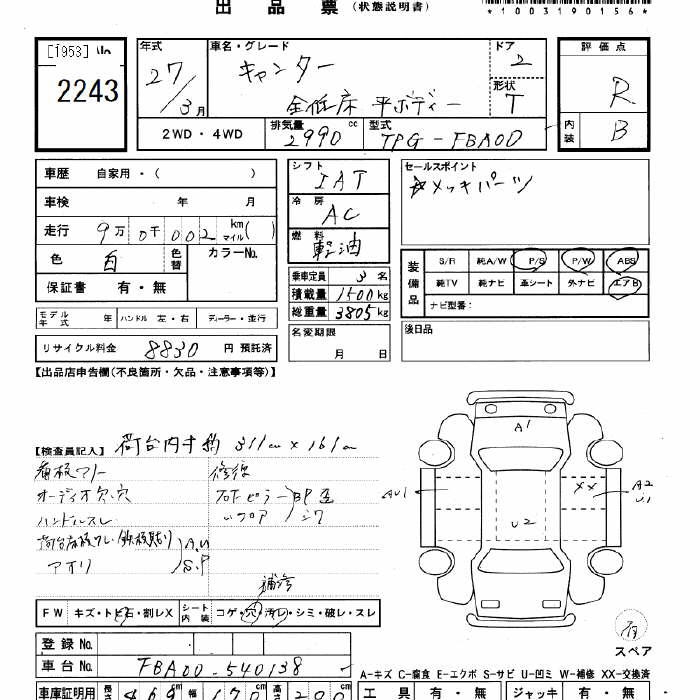 出品票 (状態説明書)
*1003190156*
[1953]
2243
年式
27/3月
車名・グレード
キャンター
全低床 平ボディー
ドア
2
形状
T
評価点
R
内装
B
2WD・4WD
排気量
2990 cc
型式
TPG-FBA00
車歴 自家用・( )
車検 年 月
走行 9万0千002 km マイル( )
色 白 色替 カラーNo.
保証書 有・無
モデル年式 年 ハンドル 左・右 ディーラー・並行
リサイクル料金 8830 円 預託済
シフト
IAT
冷房
AC
燃料
軽油
乗車定員 3 名
積載量 1500 kg
総重量 3805 kg
名変期限
月 日
セールスポイント
☆メッキパーツ
装備品
S/R 純A/W P/S P/W ABS
純TV 純ナビ 革シート 外ナビ エアB
ナビ型番:
後日品
【出品店申告欄(不良箇所・欠品・注意事項等)】
【検査員記入】 荷台内寸約 311cm×161cm
看板アリ
オーディオ欠、穴
ハンドルスレ
アオリ
A.U
S.P
修復
BP歪
シワ
フロア
補修
A1
AU1
XX
A2
U1
U2
スペア
FW キズ・トビ石・割レX シート内装 コゲ・穴・汚レ・シミ・破レ・スレ
登録No.
車台No. FBA00-540138
A-キズ C-腐食 E-エクボ S-サビ U-凹ミ W-補修 XX-交換済
車庫証明用 長さ 469 cm 幅 170 cm 高さ 200 cm
工具 有・無 ジャッキ 有・無